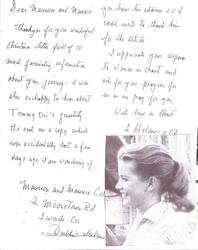 Dear Maureen and Maurice
Thank you for your wonderful
Christmas letter full of so
much interesting information
about your journey. I was
also so happy to hear about
Tommy
He sent me a copy which
was accidentally lost a few
days ago. I am wondering if
you have his address so I
could write to thank him
for the article.
I appreciate your response
to women in
ask for your progress for
me as me pray for you.
With love in Christ
Maureen and Maurice Co
2 Mooretown Rd
Swords Co
Dublin